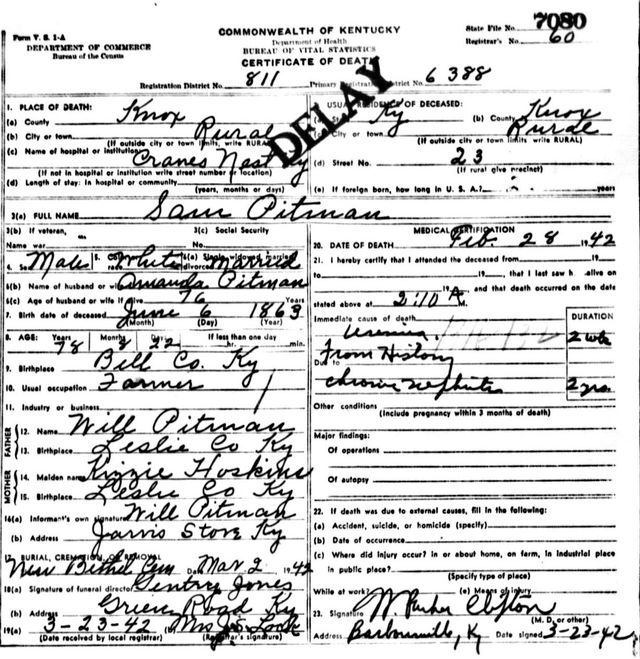 Form V. S. 1-A
DEPARTMENT OF COMMERCE
Bureau of the Census
COMMONWEALTH OF KENTUCKY
Department of Health
BUREAU OF VITAL STATISTICS
CERTIFICATE OF DEATH
State File No. 7080
Registrar's No. 60
Registration District No. 811 Primary Registration District No. 6388
DELAY
1. PLACE OF DEATH:
(a) County Knox
(b) City or town Rural
(If outside city or town limits, write RURAL)
(c) Name of hospital or institution
Cranes Nest Ky
(If not in hospital or institution write street number or location)
(d) Length of stay: In hospital or community
(years, months or days)
USUAL RESIDENCE OF DECEASED:
Ky (b) County Knox
(c) City or town Rural
(If outside city or town limits, write RURAL)
(d) Street No. 23
(If rural give precinct)
(e) If foreign born, how long in U. S. A.? years
3(a) FULL NAME Sam Pitman
3(b) If veteran, 3(c) Social Security
Name war No.
4. Sex Male 5. Color or race White 6(a) Single, widowed, married, divorced Married
6(b) Name of husband or wife Amanda Pitman
6(c) Age of husband or wife if alive 76 Years
7. Birth date of deceased June 6 1863
(Month) (Day) (Year)
8. AGE: Years Months Days If less than one day
78 8 22 hr. min.
9. Birthplace Bell Co. Ky
10. Usual occupation Farmer
11. Industry or business
FATHER
12. Name Will Pitman
13. Birthplace Leslie Co Ky
MOTHER
14. Maiden name Kizzie Hoskins
15. Birthplace Leslie Co Ky
16(a) Informant's own signature Will Pitman
(b) Address Jarvis Store Ky
17. BURIAL, CREMATION, OR REMOVAL
New Bethel Cem Date Mar 2 1942
18(a) Signature of funeral director Gentry Jones
(b) Address Green Road Ky
19(a) 3-23-42 Mrs Jas Look
(Date received by local registrar) (Registrar's signature)
MEDICAL CERTIFICATION
20. DATE OF DEATH Feb. 28 1942
21. I hereby certify that I attended the deceased from 19
to 19, that I last saw h alive on
19, and that death occurred on the date
stated above at 2:10 A M
Immediate cause of death DURATION
Uremia 2 wks
From History
Due to
chronic nephritis 2 yrs.
Other conditions
(Include pregnancy within 3 months of death)
Major findings:
Of operations
Of autopsy
22. If death was due to external causes, fill in the following:
(a) Accident, suicide, or homicide (specify)
(b) Date of occurrence
(c) Where did injury occur? In or about home, on farm, in industrial place
in public place?
(Specify type of place)
While at work? (e) Means of injury
23. Signature W. Parker Clifton
(M. D. or other)
Address Barbourville, Ky Date signed 3-23-42